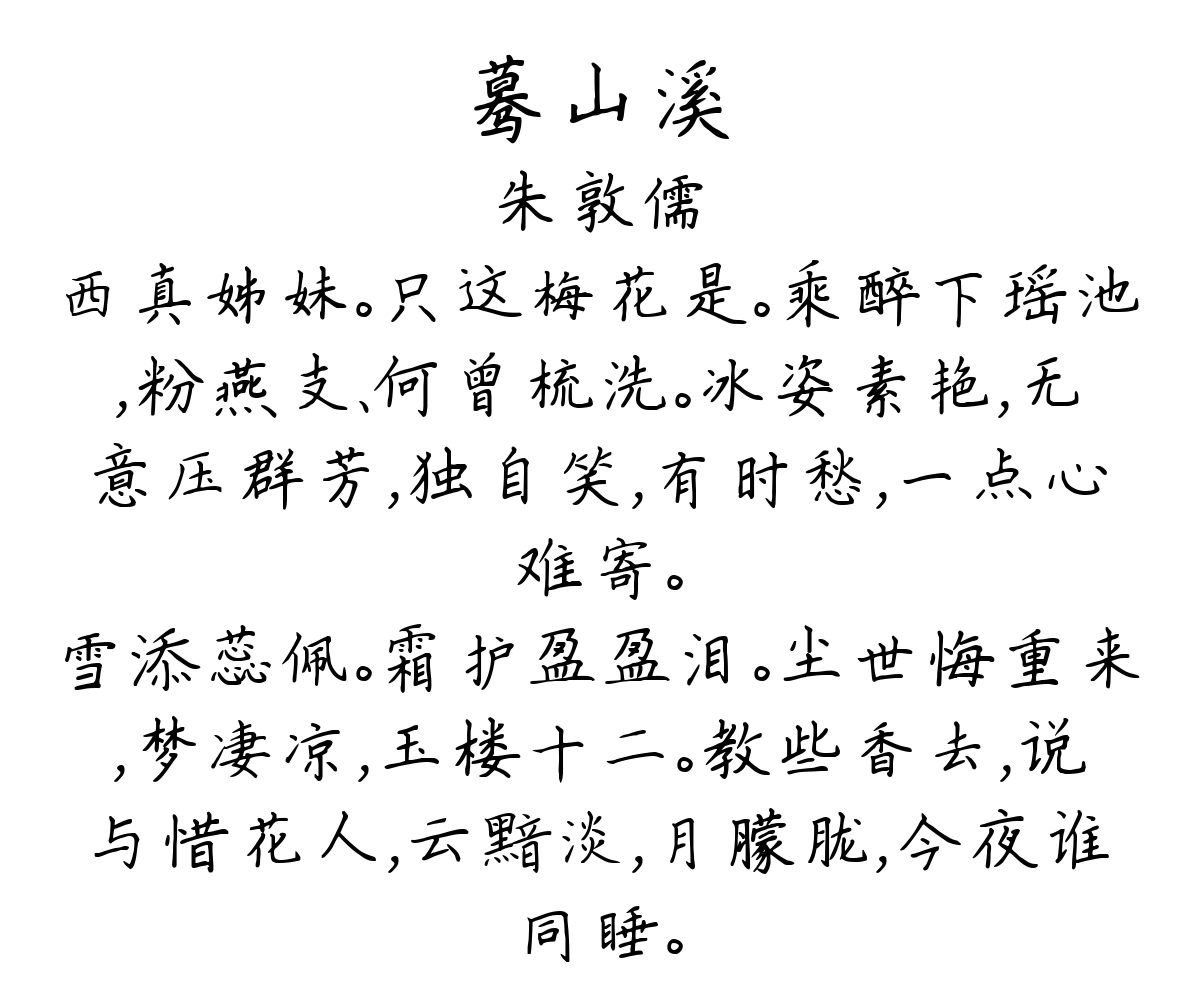 蓦山溪
朱敦儒
西真姊妹。只这梅花是。乘醉下瑶池
,粉燕支、何曾梳洗。冰姿素艳,无
意压群芳,独自笑,有时愁,一点心
难寄。
雪添蕊佩。霜护盈盈泪。尘世悔重来
,梦凄凉,玉楼十二。教些香去,说
与惜花人,云黯淡,月朦胧,今夜谁
同睡。